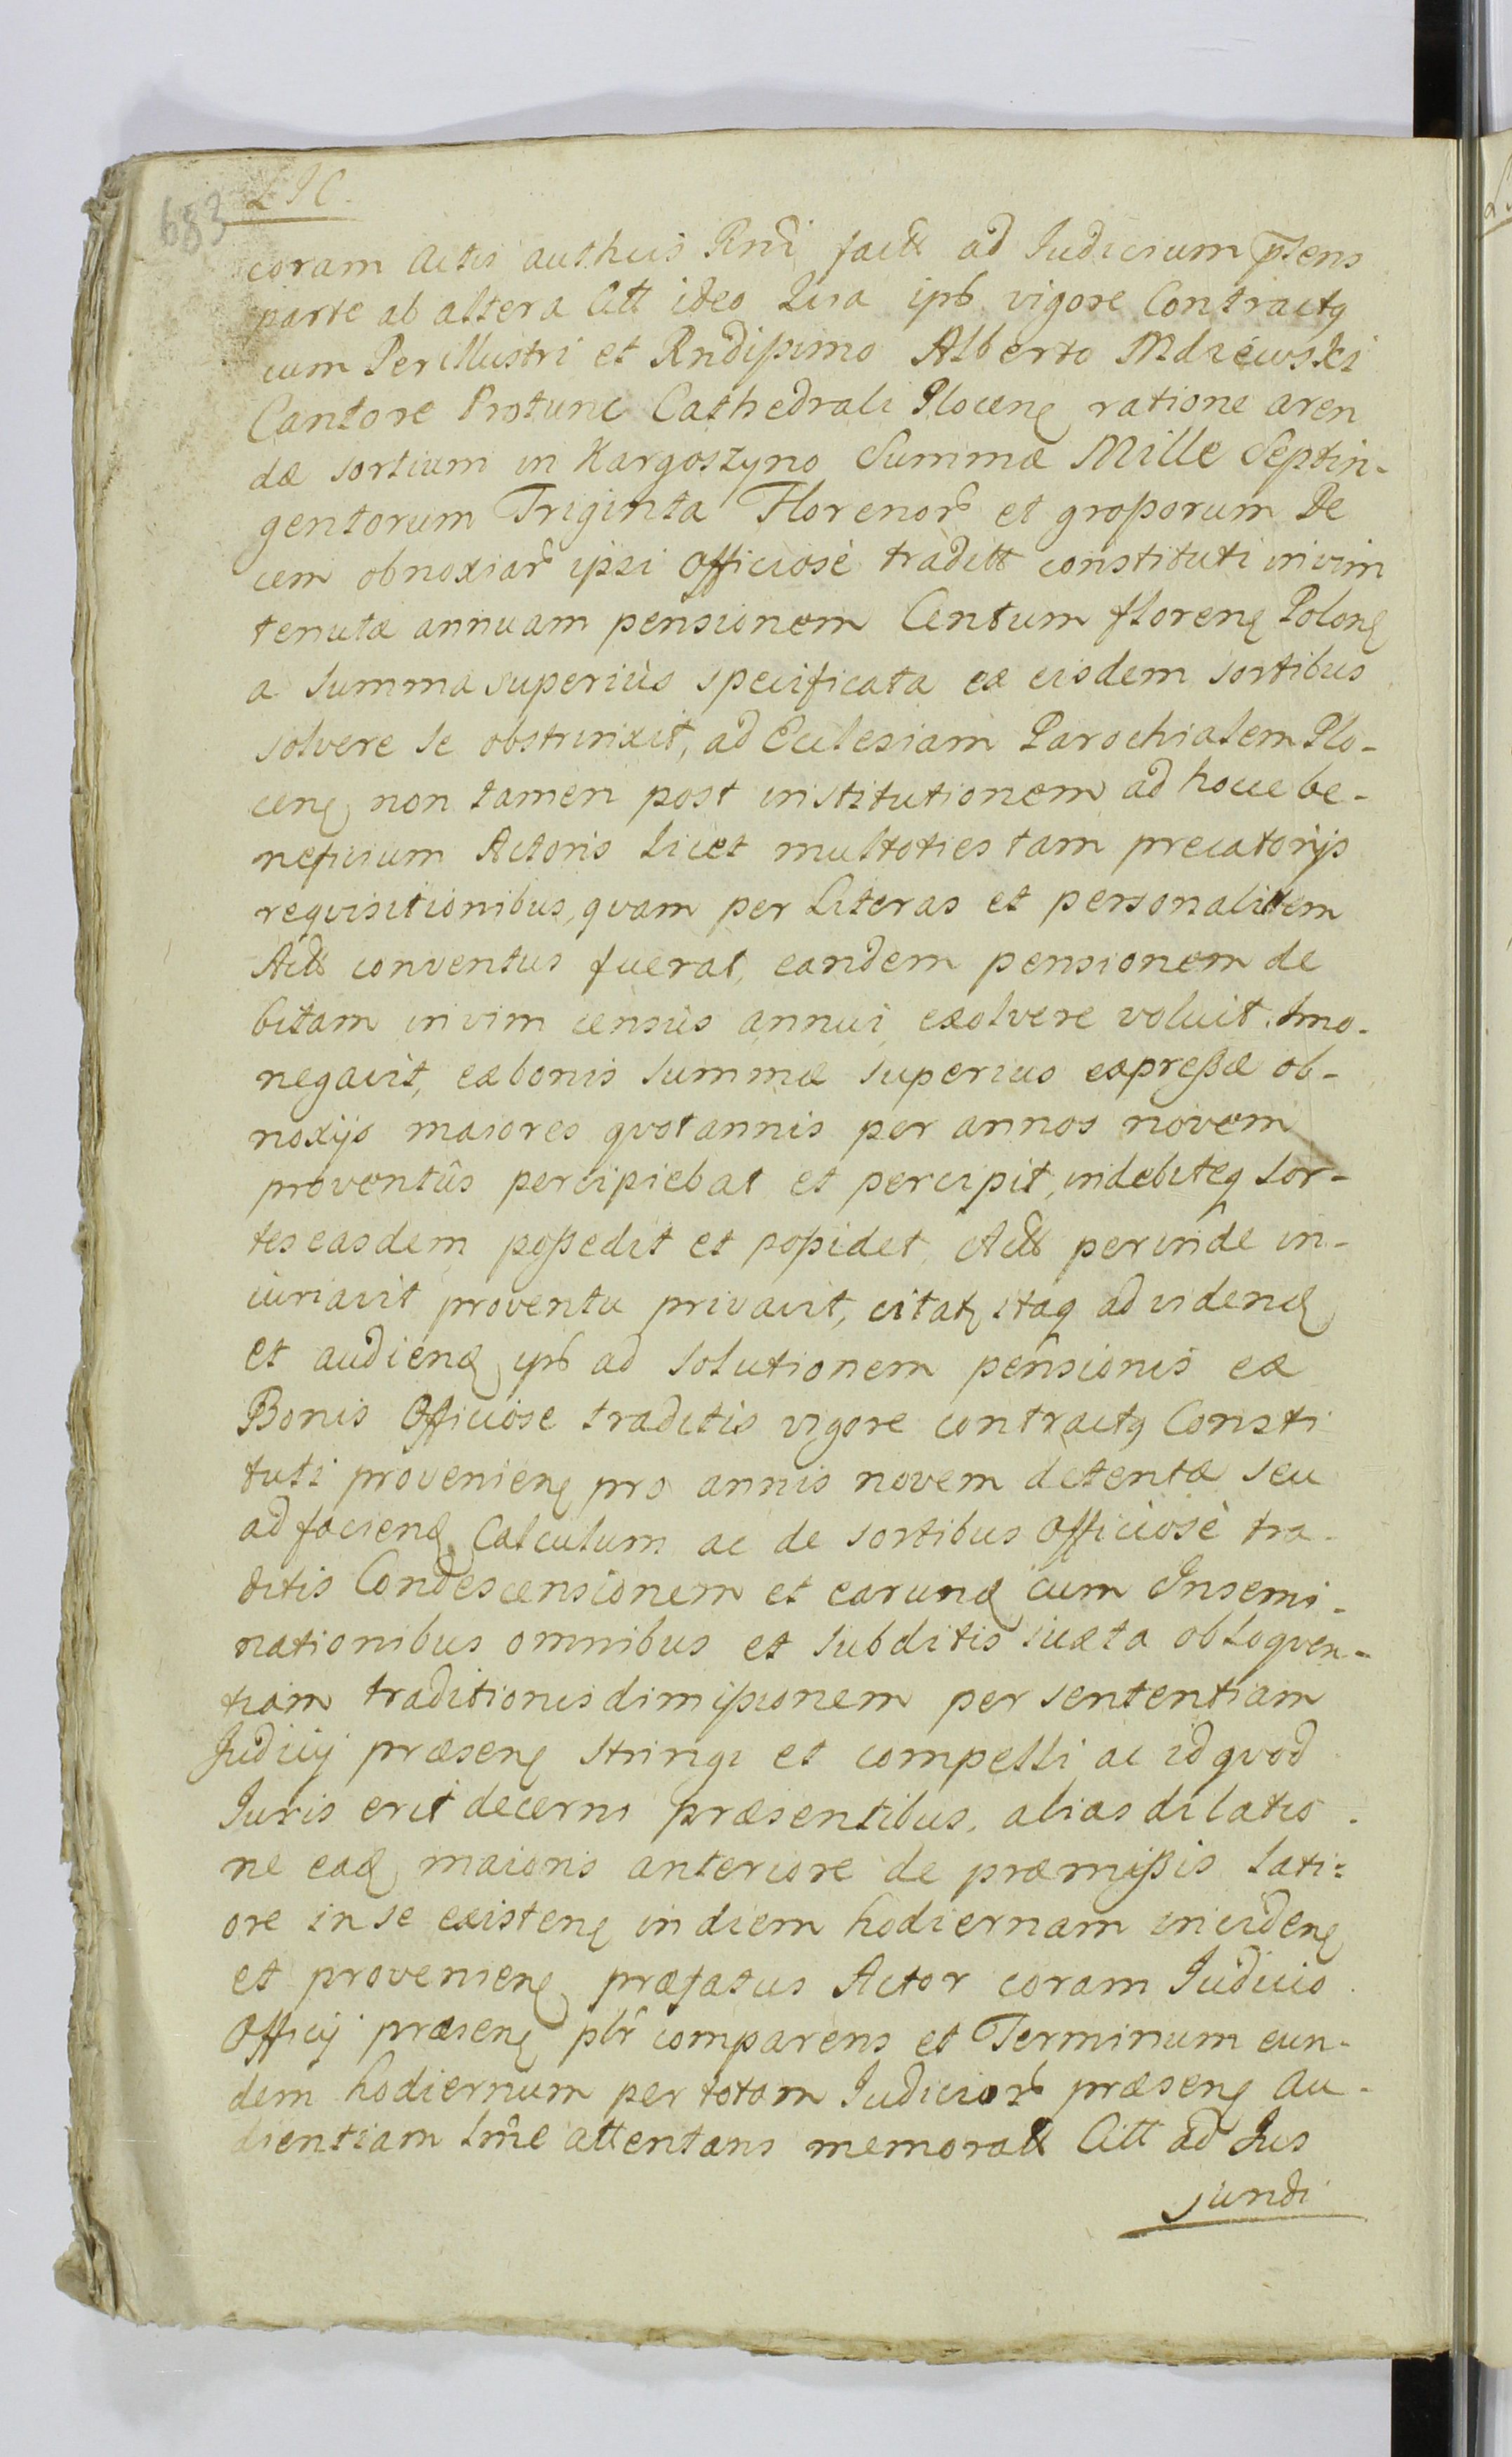 683
coram Actis authcis Rndi factt ad Judicium pñens
parte ab altera Citt ideo Quia ips vigore Contractq
cum Perillustri et Rndißimo Alberto Mdzewski
Cantore Protunc Cathedrali Plocenȩ ratione aren
dæ sortium in Kargoszyno Summæ Mille Septin-
gentorum Triginta Florenor et großorum De
cem obnoxiar ipsi officiosè traditt constituti in vim
tenutæ annuam pensionem Centum florenȩ Polonȩ
a summa superiùs specificata ex eisdem sortibus
solvere se obstrinxit, ad Ecclesiam Parochialem Plo-
cenȩ non tamen post institutionem ad hocce be-
neficium Actoris licet multoties tam precatorijs
requisitionibus, qvam per Literas et personalitem
Act conventus fuerat, eandem pensionem de
bitam in vim censùs annui exolvere voluit. Imo-
negavit, ex bonis summæ superius expreßæ ob-
noxijs maiores qvotannis per annos novem
proventûs percipiebat et percipit, indebiteq sor-
tes easdem poßedit et poßidet, Act perinde in-
iuriavit proventu privavit, citatȩ itaq ad videnđ
et audienđ ips ad solutionem pensionis ex
Bonis Officiose traditis vigore contractq Consti
tuti provenienȩ pro annis novem detentæ seu
ad facienđ Calculum ac de sortibus officiosè tra-
ditis Condescensionem et earunđ cum Insemi-
nationibus omnibus et subditis iuxta obloqven-
tiam traditionis dimißionem per sententiam
Judicij præsenȩ stringi et compelli ac id qvod
Iuris erit decerni præsentibus, alias dilatio
ne eađ maioris anteriore de præmißis lati-
ore in se existenȩ in diem hodiernam incidenȩ
et provenienȩ præfatus Actor coram Iudicio
Officij præsenȩ plr comparens et Terminum eun-
dem hodiernum per totam Iudicior præsenȩ Au-
dientiam lmê attentans memoratt Citt ad Ius
sundi